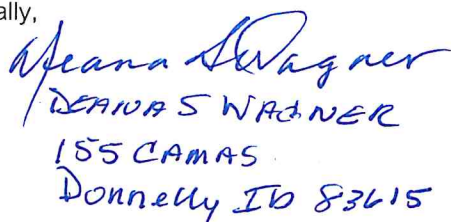 ally,
Deana S Wagner
DEANA S WAGNER
155 CAMAS
Donnelly ID 83615